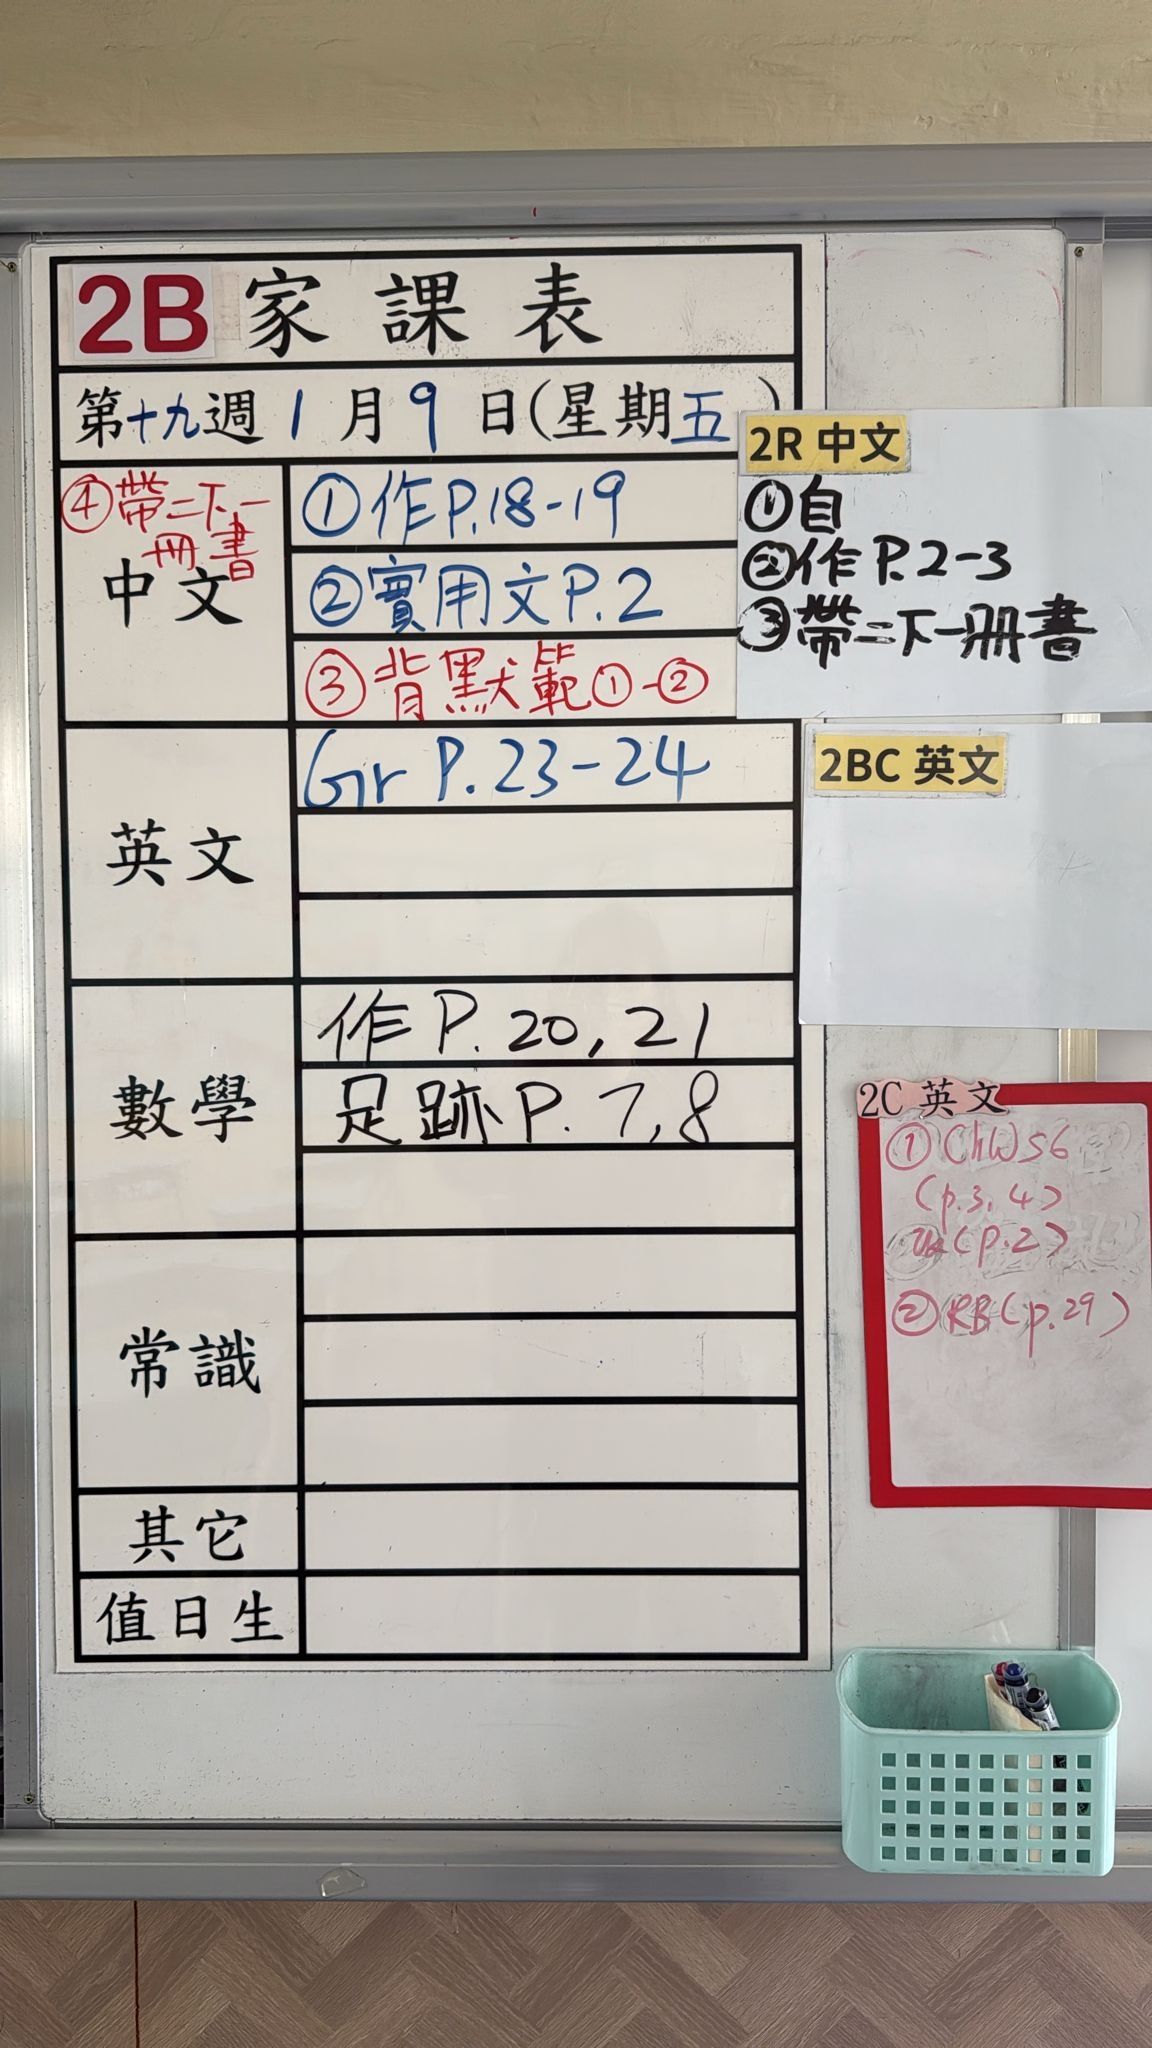 2B 家課表
第十九週 1 月 9 日(星期五)
中文
④帶二下一
冊書
①作P.18-19
②實用文P.2
③背默範①-②
英文
Gr P.23-24
數學
作P.20,21
足跡P.7,8
常識
其它
值日生
2R 中文
①自
②作P.2-3
③帶二下一冊書
2BC 英文
2C 英文
①ChW56
(p.3,4)
(p.2)
②RB(p.29)